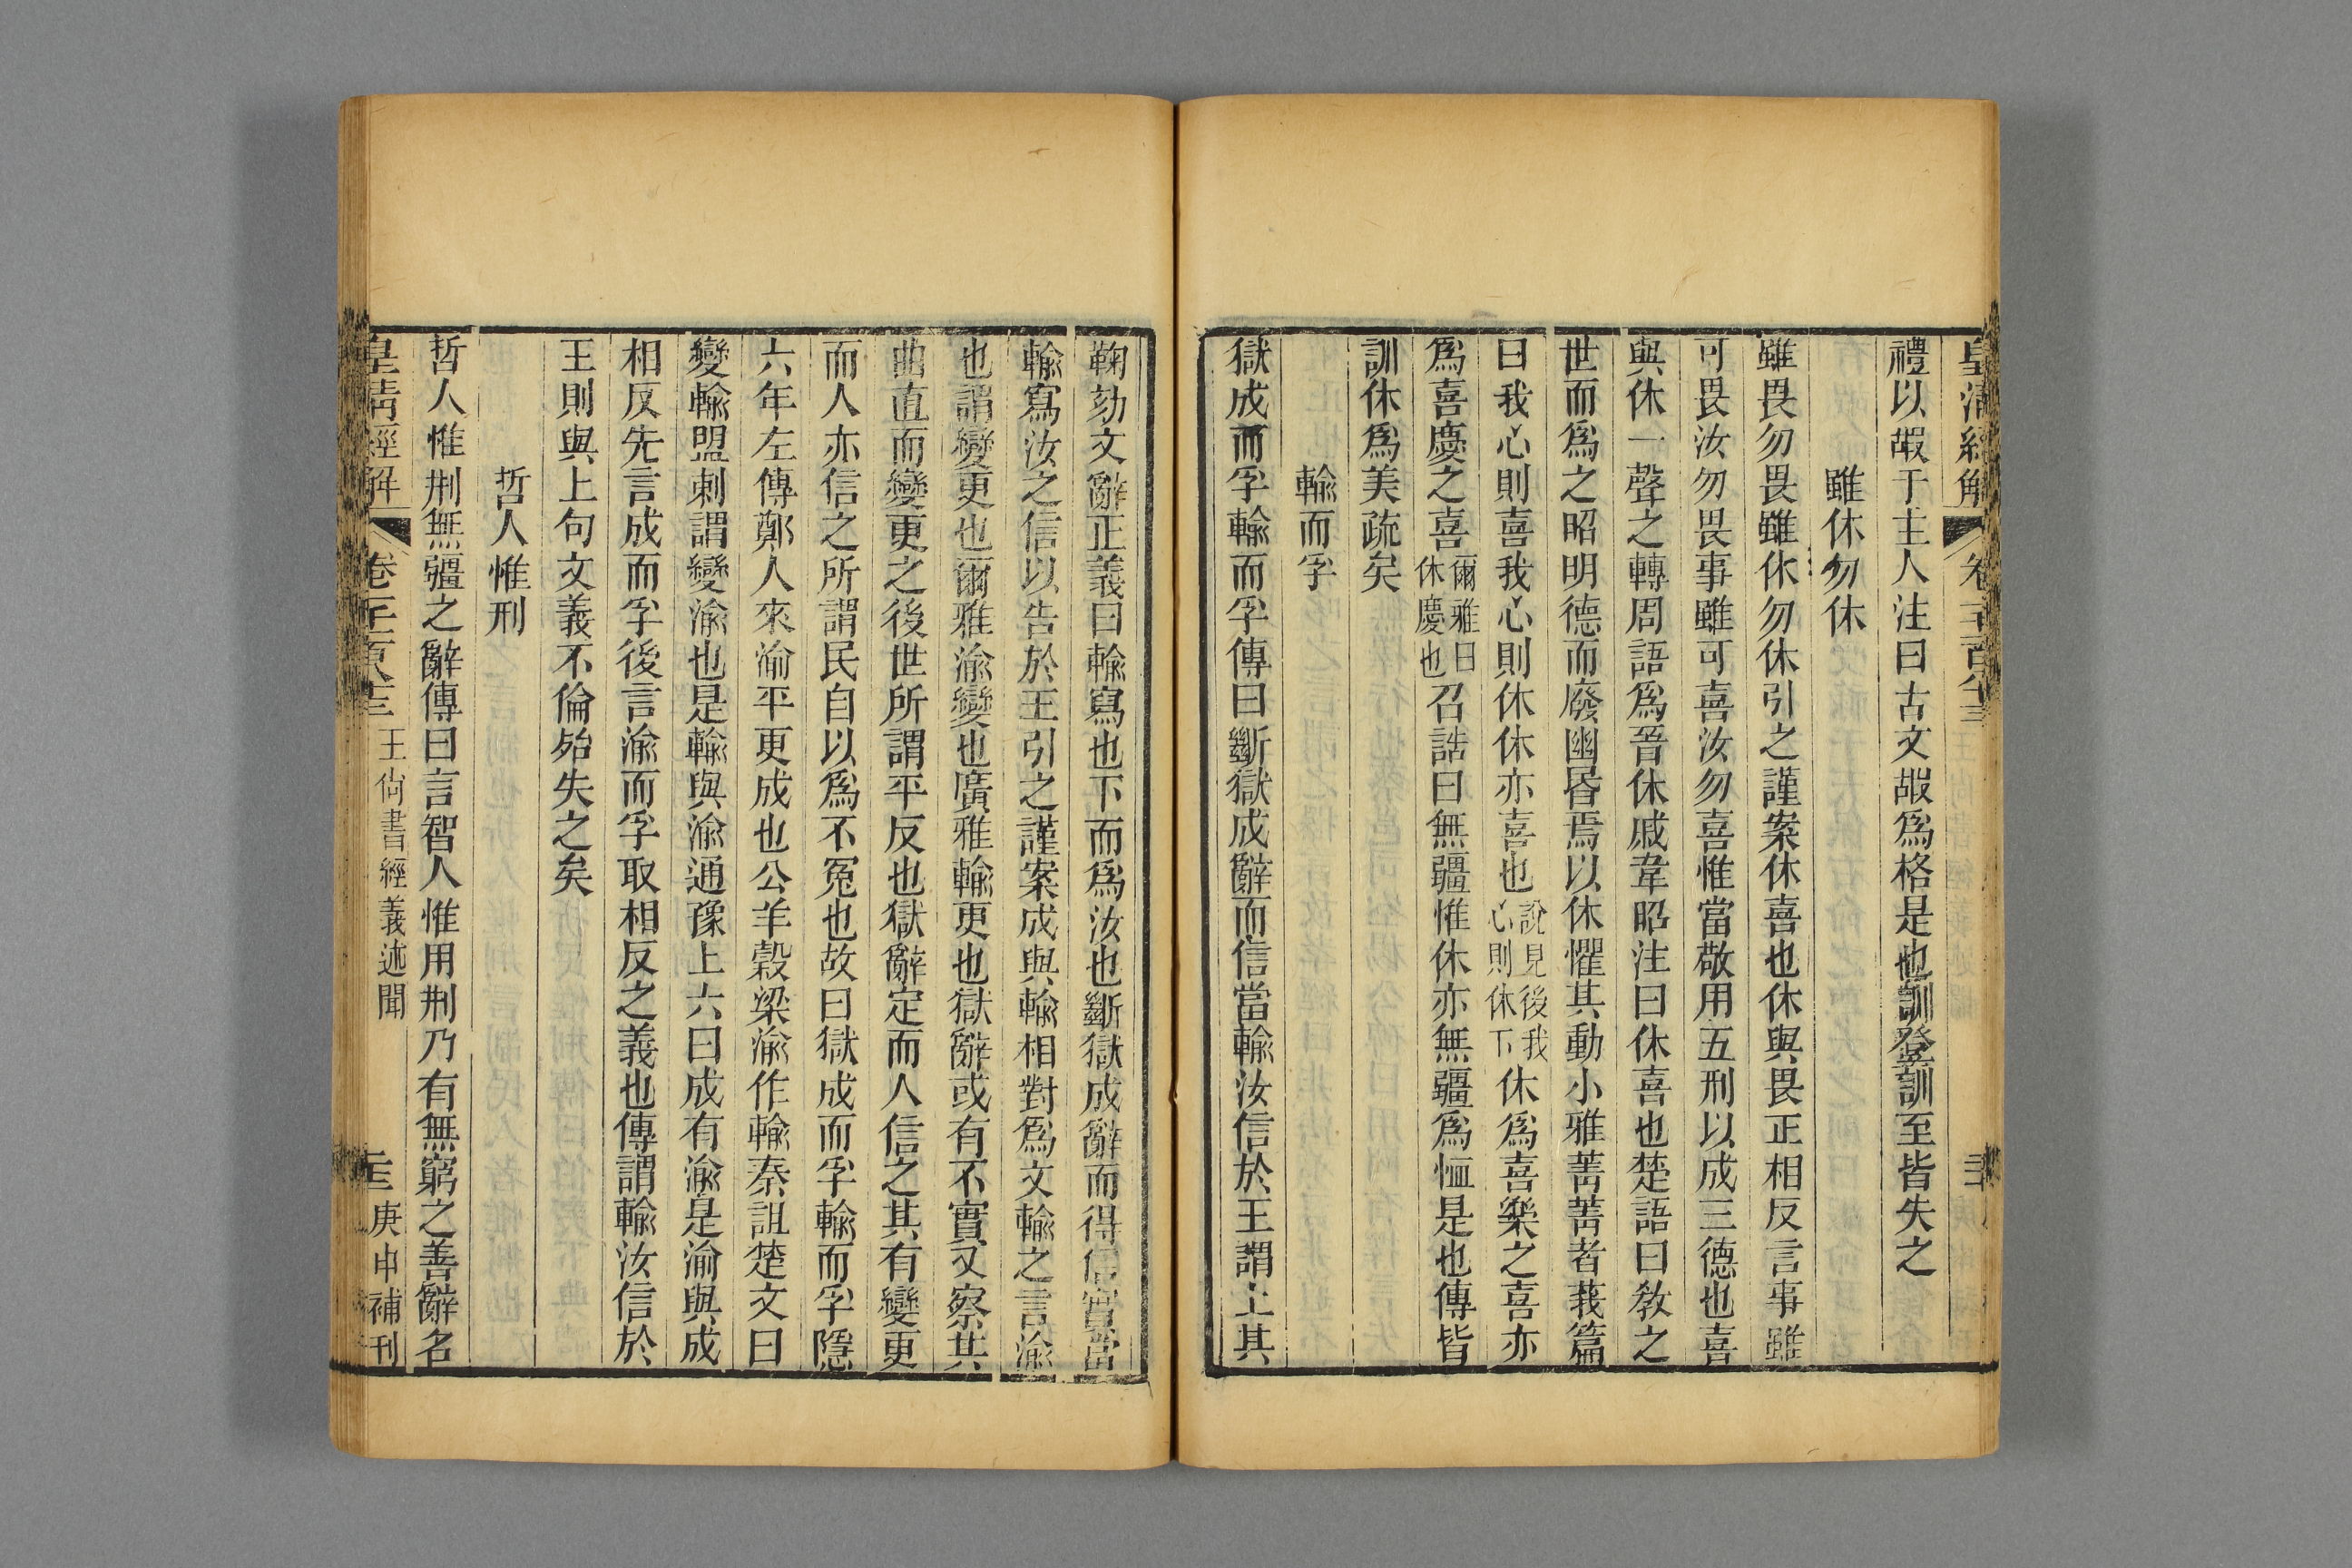 皇清經解
卷千一百八十三
禮以嘏于主人注曰古文嘏爲格是也訓登訓至皆失之
雖休勿休
雖畏勿畏雖休勿休引之謹案休喜也休與畏正相反言事雖
可畏汝勿畏事雖可喜汝勿喜惟當敬用五刑以成三德也喜
與休一聲之轉周語爲晉休戚韋昭注曰休喜也楚語曰敎之
世而爲之昭明德而廢幽昬焉以休懼其動小雅菁菁者莪篇
曰我心則喜我心則休休亦喜也說見後我心則休下休爲喜樂之喜亦
爲喜慶之喜爾雅曰休慶也召誥曰無疆惟休亦無疆爲恤是也傳皆
訓休爲美疏矣
輸而孚
獄成而孚輸而孚傳曰斷獄成辭而信當輸汝信於王謂上其
鞠劾文辭正義曰輸寫也下而爲汝也斷獄成辭而得信實當
輸寫汝之信以告於王引之謹案成與輸相對爲文輸之言渝
也謂變更也爾雅渝變也廣雅輸更也獄辭或有不實又察其
曲直而變更之後世所謂平反也獄辭定而人信之其有變更
而人亦信之所謂民自以爲不冤也故曰獄成而孚輸而孚隱
六年左傳鄭人來渝平更成也公羊穀梁渝作輸秦詛楚文曰
變輸盟刺謂變渝也是輸與渝通豫上六曰成有渝是渝與成
相反先言成而孚後言渝而孚取相反之義也傳謂輸汝信於
王則與上句文義不倫殆失之矣
哲人惟刑
哲人惟刑無疆之辭傳曰言智人惟用刑乃有無窮之善辭名
皇清經解
卷千一百八十三
王尙書經義述聞
庚申補刊